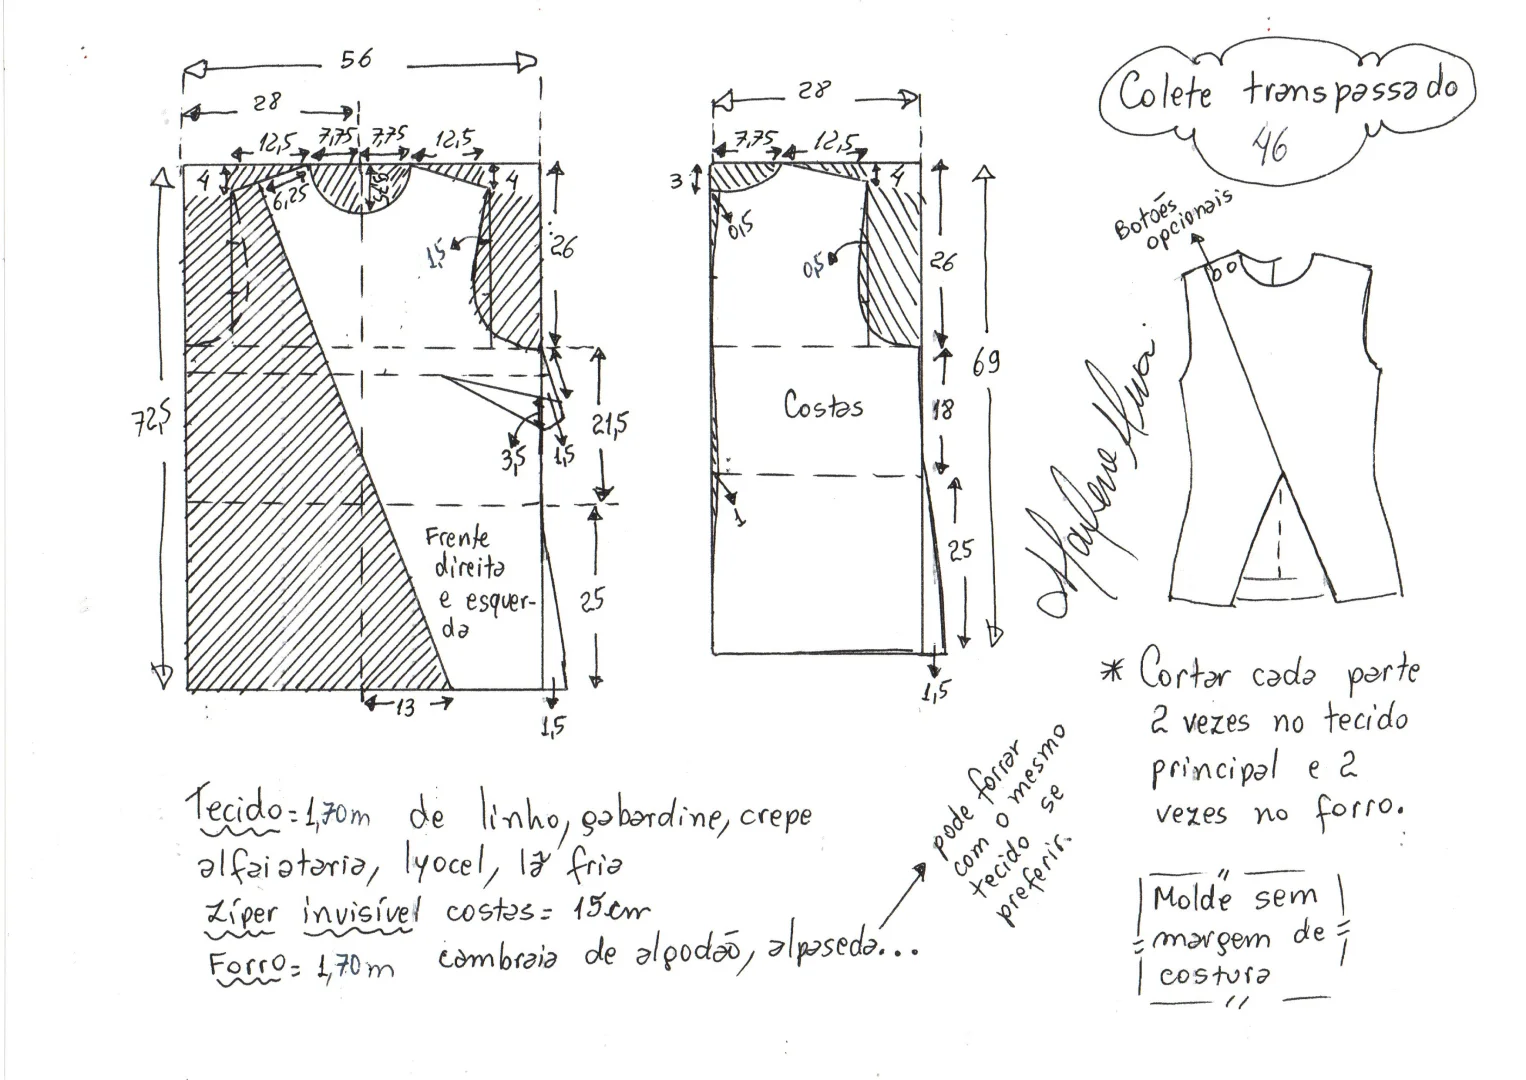 56
28
28
Colete transpassado
46
12,5 7,75 7,75 12,5
7,75 12,5
4
6,25
4
3
4
Botões
opcionais
0,5
1,5
26
0,5
26
72,5
69
Costas
18
3,5
1,5
21,5
1
25
Frente
direita
e esquer-
da
25
13
1,5
1,5
* Cortar cada parte
2 vezes no tecido
principal e 2
vezes no forro.
Tecido = 1,70m de linho, gabardine, crepe
alfaiataria, lyocel, lã fria
Zíper invisível costas = 15cm
Forro = 1,70m cambraia de algodão, alpaseda...
pode forrar
com o mesmo
tecido se
preferir.
Molde sem
margem de
costura